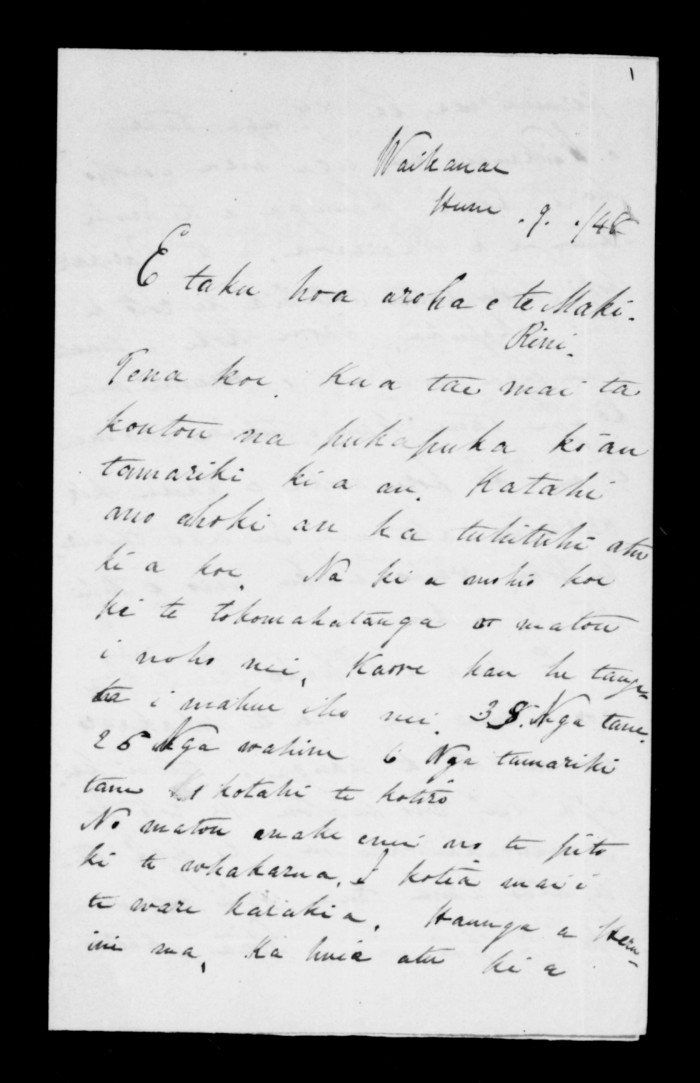 1
Waikanae
Hune . 9 . /48
E taku hoa aroha e te Maki-
Rini-
Tena koe. Kua tae mai ta
koutou na pukapuka ko au
tamariki ki a au. Katahi
ano ahoki au ka tuhituhi atu
ki a koe. Na ki a mohio koe
ki te tokomahatanga o matou
i noho nei. Kaore kau he tanga-
ta i mahue iho nei. 38. Nga tane.
26 Nga wahine 6 Nga tamariki
tane kotahi te kotiro
No matou anake enei no te pito
ki te whakarua. I kotia mai i
te ware karakia. Haunga a Hera-
ini ma. Ka huia atu ki a